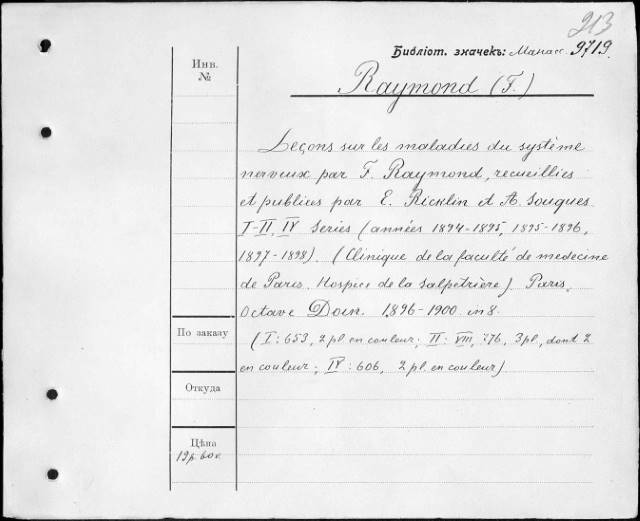 213
Библіот. значекъ: Манас. 9719.
Инв.
№
Raymond (F.)
Leçons sur les maladies du système
nerveux par F. Raymond, recueillies
et publiées par E. Ricklin et A. Souques
I-II, IV Series (années 1894-1895, 1895-1896,
1897-1898). (Clinique de la faculté de medecine
de Paris. Hospice de la Salpêtrière) Paris,
Octave Doin. 1896-1900. in 8.
По заказу
(I: 653, 2 pl. en couleur; II: VIII, 776, 3 pl., dont 2
en couleur; IV: 606, 2 pl. en couleur)
Откуда
Цѣна
19 р. 60 к.